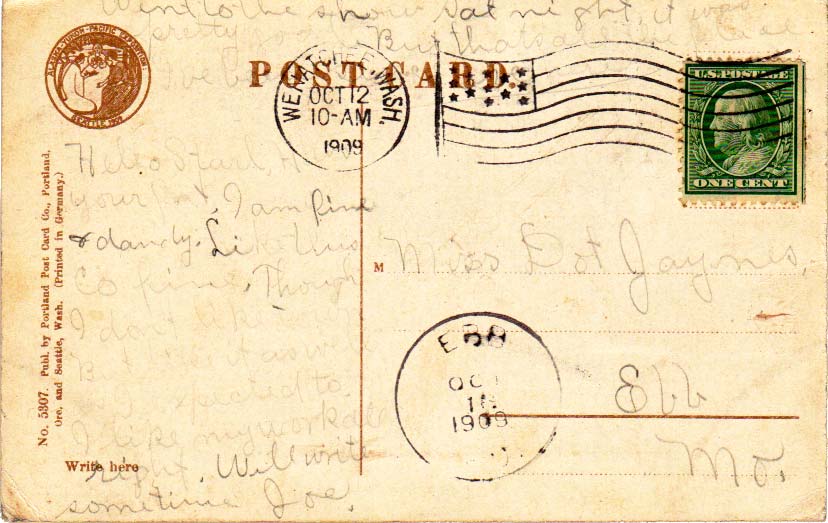 Went to the show Sat night, it was
pretty good. But thats all the place
I've been
ALASKA-YUKON-PACIFIC EXPOSITION
SEATTLE 1909
POST CARD.
WENATCHEE, WASH.
OCT 12
10-AM
1909
U.S. POSTAGE
ONE CENT
Hello
your I am fine
& dandy. Like this
Co fine. Though
I don't like
But as well
expected to.
I like my work all
right. Will write
sometime Joe.
M Miss Dot Jaynes,
Ebb
Mo.
EBB
OCT
1909
No. 5307. Publ. by Portland Post Card Co., Portland,
Ore, and Seattle, Wash. (Printed in Germany.)
Write here